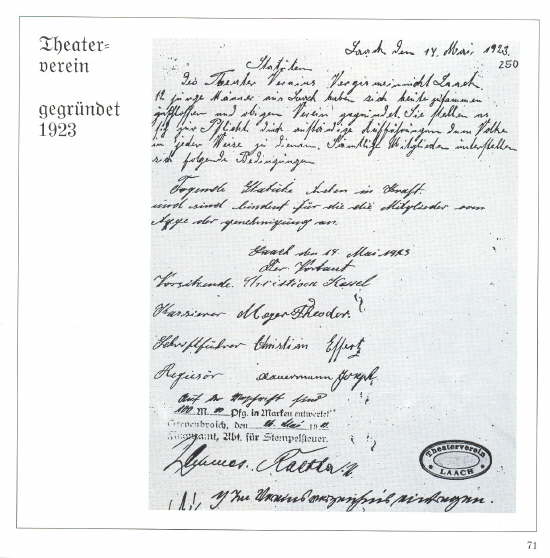 Theater=
verein
gegründet
1923
Laach den 14. Mai. 1923.
250
Statüten
Des Theater Vereins Vergissmeinnicht Laach.
12 junge Männer aus Laach haben sich heute zusammen
und obigen Verein gegründet. Sie stellen es
sich zur Pflicht durch anständige Aufführungen dem Volke
in jeder Weise zu dienen. Sämtliche Mitglieder unterstellen
sich folgende Bedingungen
Folgende Statüte treten in Kraft
und sind bindent für die die Mitglieder vom
Tage der genehmigung an.
Laach den 14. Mai 1923
Der Vorstant
Vorsitzende. Christian Havel
Kassierer Meyer Theodor.
Schriftführer Christian Effertz
Regisör Joseph.
Auf der Urschrift sind
100 M. Pfg. in Marken entwertet
Grevenbroich, den Mai 19
Finanzamt, Abt. für Stempelsteuer.
Theaterverein
LAACH
Im Vereinsverzeichnis eintragen.
71